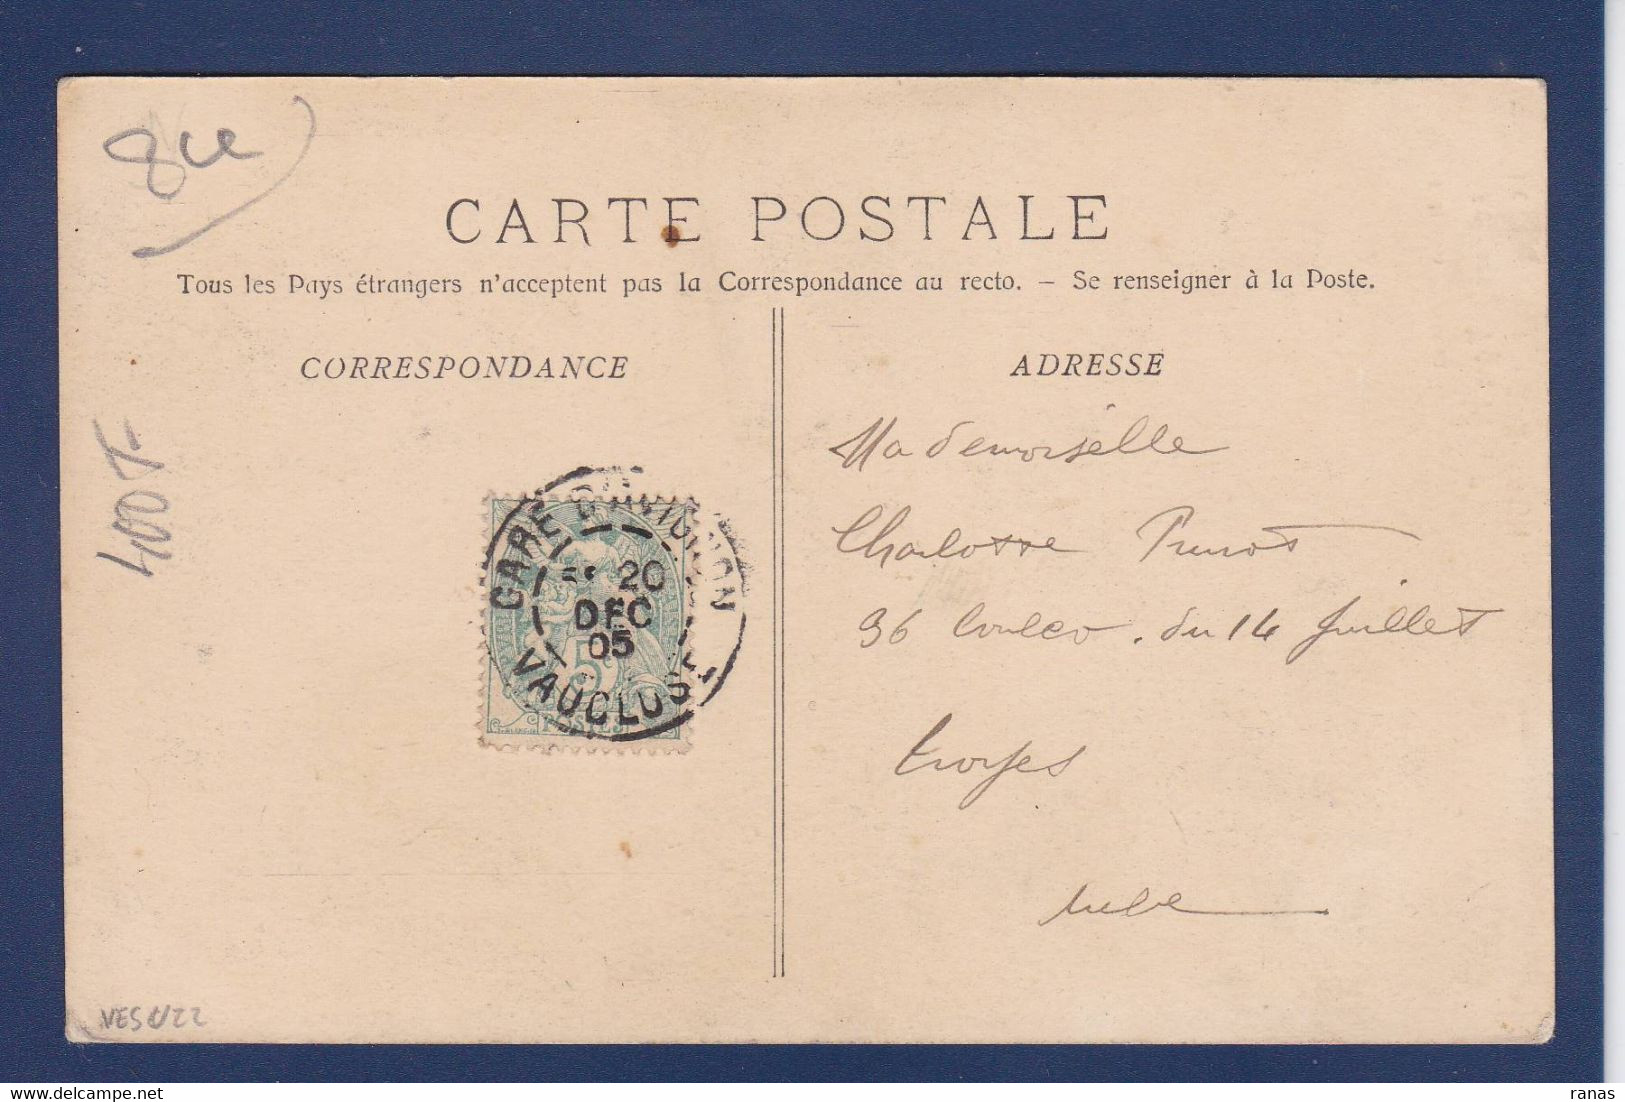 84
CARTE POSTALE
Tous les Pays étrangers n'acceptent pas la Correspondance au recto. — Se renseigner à la Poste.
CORRESPONDANCE
ADRESSE
400 F
Mademoiselle
Charlotte
36 du 14 juillet
troyes
aube
GARE D'AVIGNON
20
DEC
05
VAUCLUSE
5
POSTES
VES 1/22
ranas